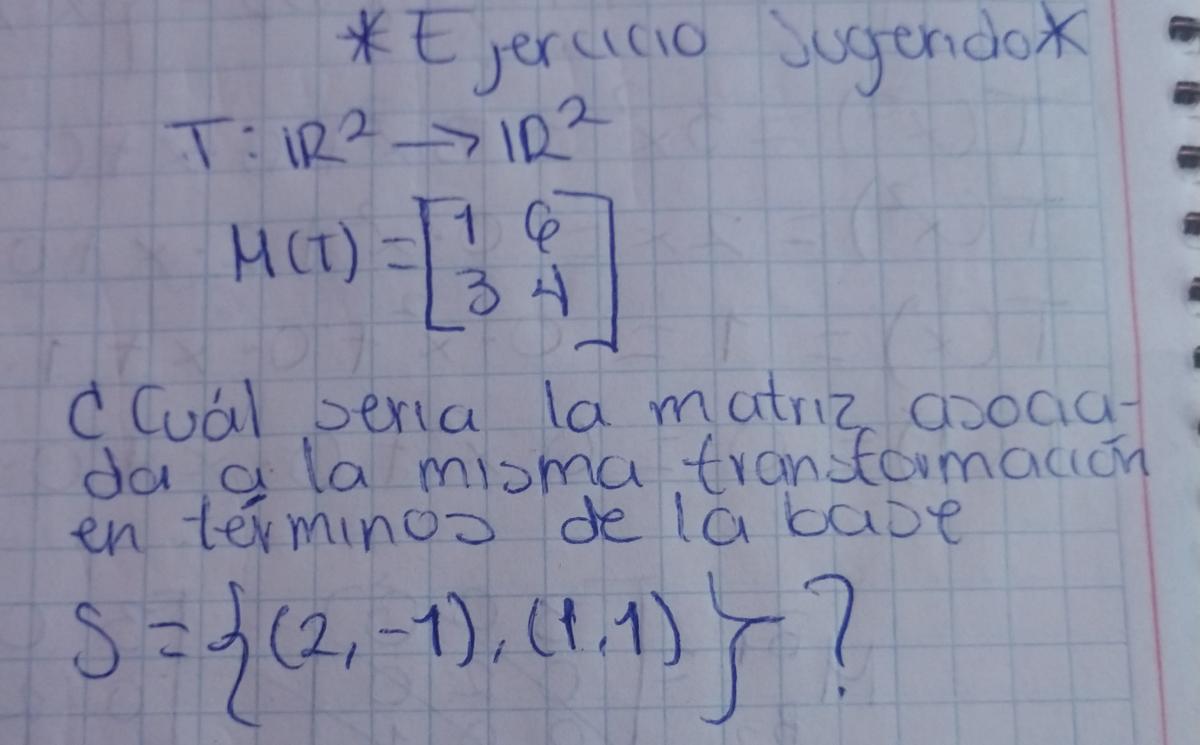 *Ejercicio Sugerido*
T: IR² → IR²
M(T) = [1 6
3 4]
¿Cuál sería la matriz asocia-
da a la misma transformación
en términos de la base
S = {(2, -1), (1, 1)}?